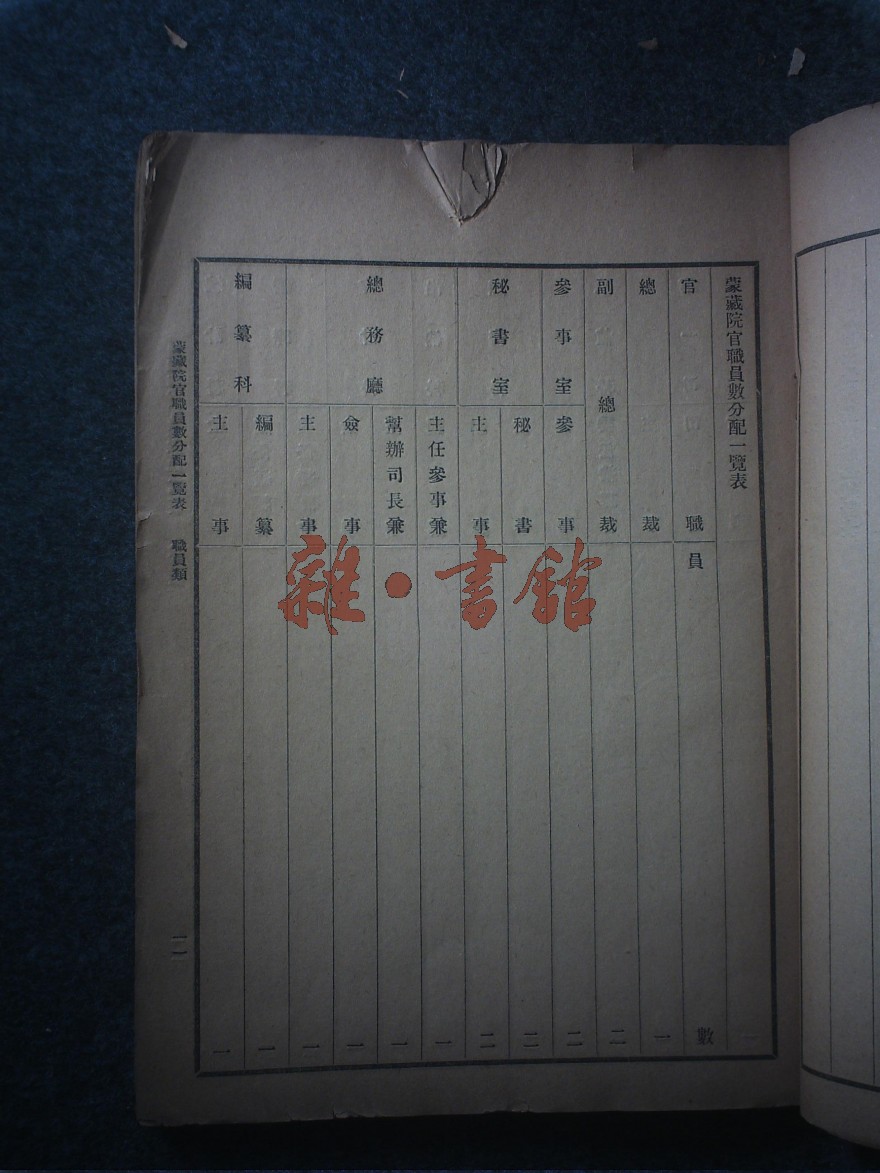 蒙藏院官職員數分配一覽表
官職員數
總裁一
副總裁二
參事室參事二
秘書室秘書二
主事二
總務廳主任參事兼一
幫辦司長兼一
僉事一
主事一
編纂科編纂一
主事一
蒙藏院官職員數分配一覽表 職員類
雜·書館